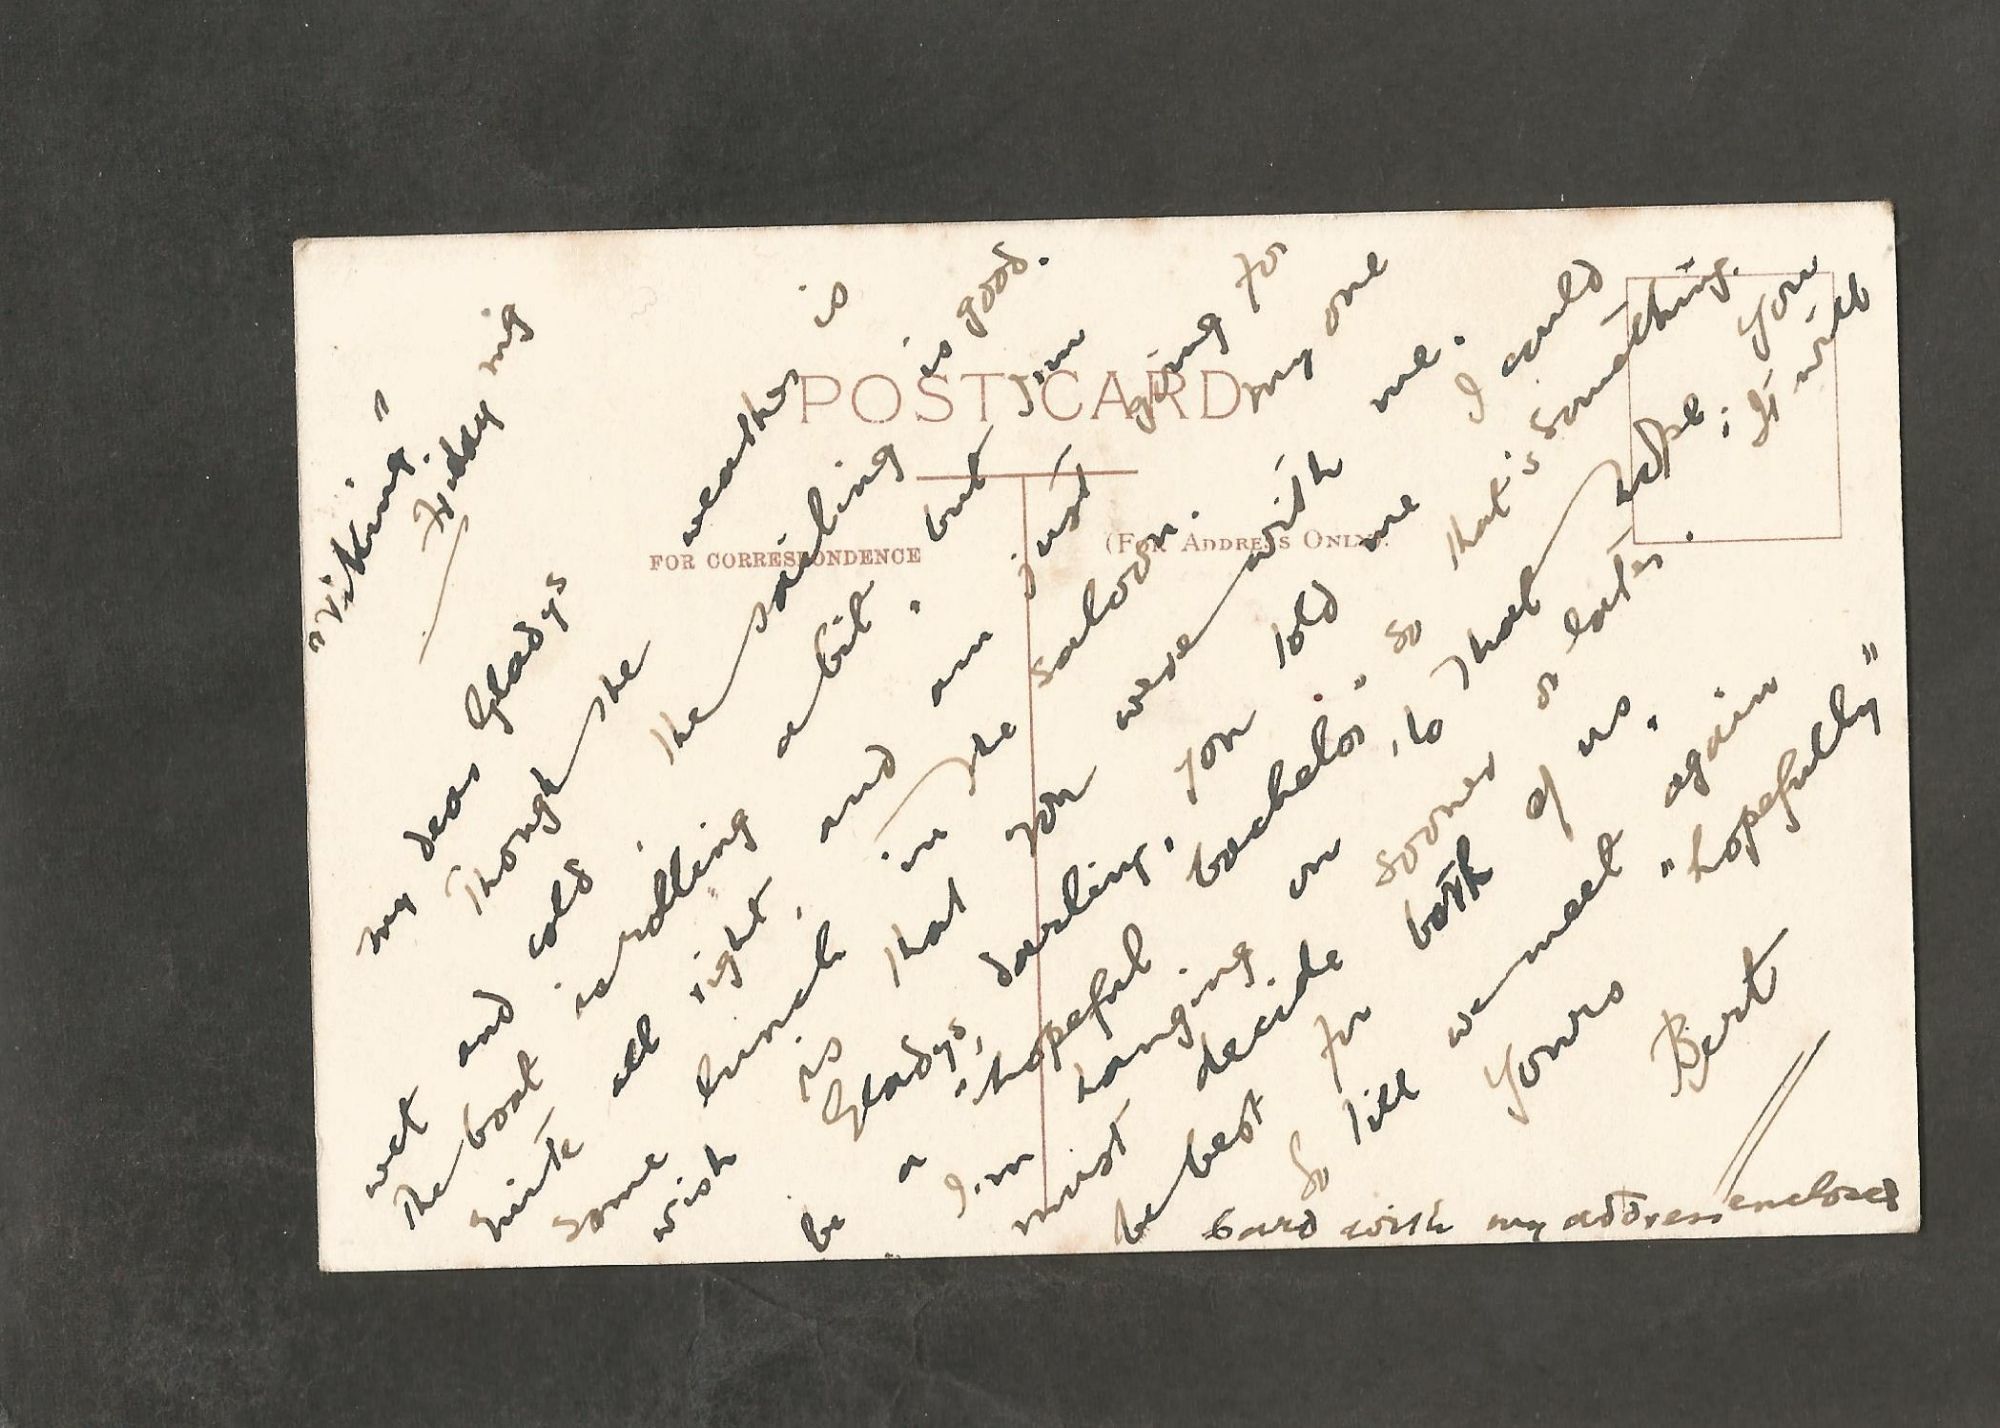 POST CARD
FOR CORRESPONDENCE
(FOR ADDRESS ONLY).
"Viking."
Friday mg
My dear Gladys
Though the weather is
wet and cold, the sailing is good.
The boat is rolling a bit, but I'm
quite all right, and am just going for
some lunch in the saloon. My one
wish is that you were with me.
Gladys, darling, you told me I could
be a "hopeful bachelor" so that's something.
I'm hanging on to that hope; you
must decide sooner or later. It will
be best for both of us.
So till we meet again
Yours "hopefully"
Bert
Card with my address enclosed